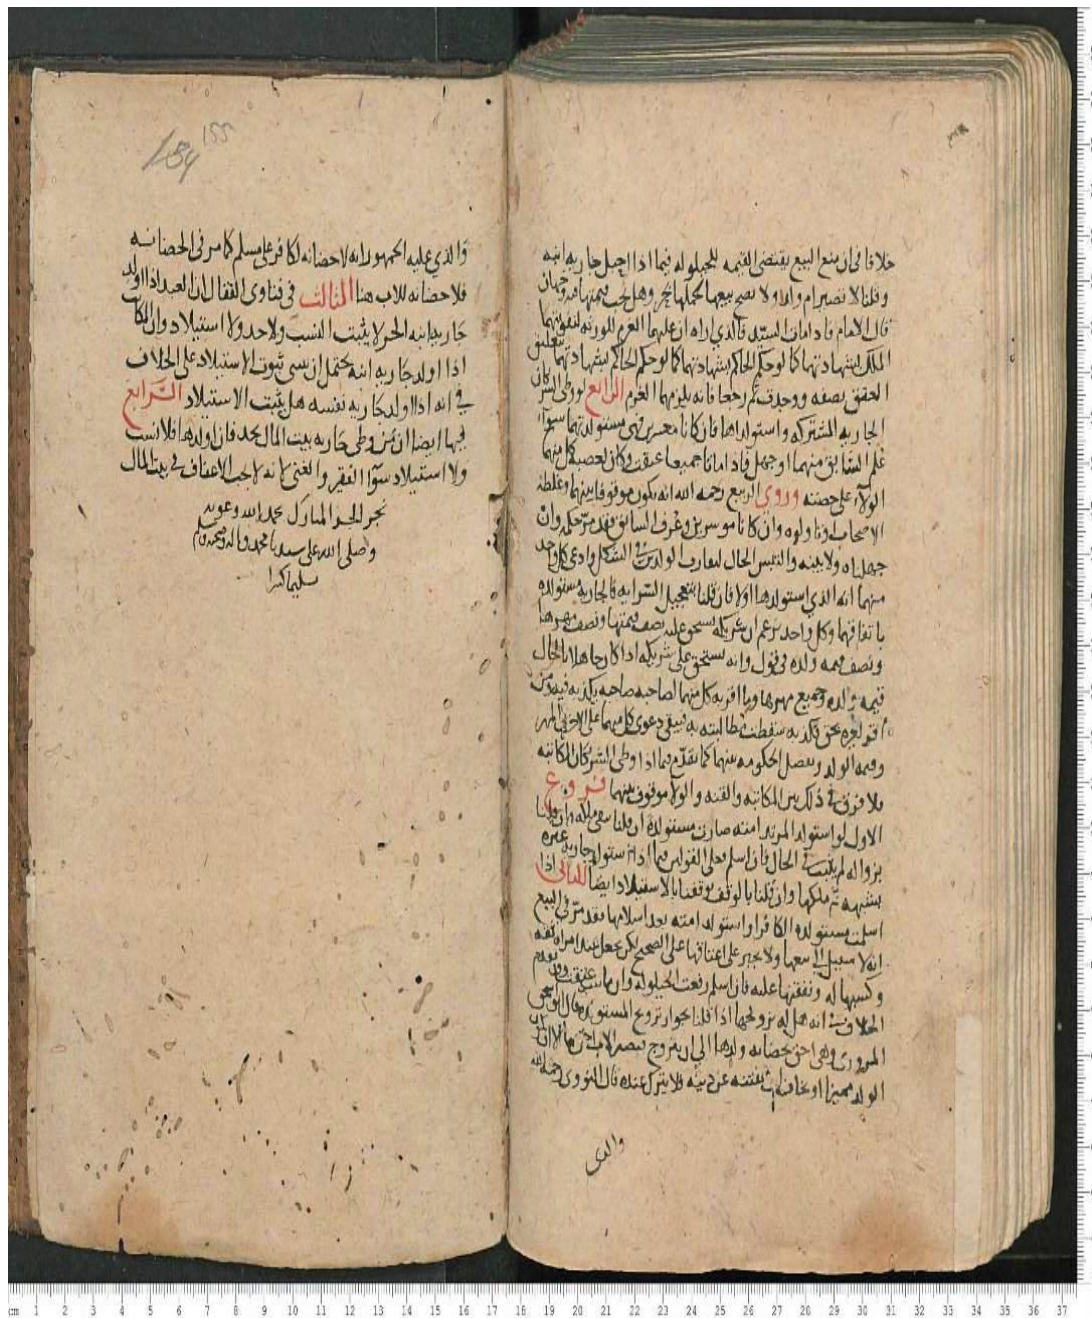 خلافا في ان منع البيع يقتضي القيمه للحيلوله فيما اذا احبل جاريه ابنه
وقلنا لا تصير ام ولد ولا يصح بيعها لحملها بحر وهل يجب قيمتها فيه وجهان
قال الامام فاذا مات السيد فالذي اراه ان عليهما الغرم للورثه لتفويتهما
الملك بشهادتهما كما لو حكم الحاكم بشهادتهما كما لو حكم الحاكم بشهادتهما بتعليق
العتق بصفه ووجدت ثم رجعا فانه يلزمهما الغرم الرابع لو وطئ الشريكان
الجاريه المشتركه واستولداها فان كانا معسرين فهي مستولدتهما سوآ
علم السابق منهما او جهل فاذا ماتا جميعا عتقت وكان لعصبه كل منهما
الولآء على حصته وروي الربيع رحمه الله انه يكون موقوفا بينهما وغلطه
الاصحاب وتاولوه وان كانا موسرين وعرف السابق فقد مر حكمه وان
جهلناه ولا بينه والتبس الحال لتقارب الولدين في الشكل وادعى كل واحد
منهما انه الذي استولدها اولا فان قلنا بتعجيل السرايه فالجاريه مستولده
باتفاقهما وكل واحد يزعم ان شريكه يستحق عليه نصف قيمتها ونصف مهرها
ونصف قيمه ولده في قول وانه يستحق على شريكه اذا كان جاهلا بالحال
قيمه ولده وجميع مهرها وما اقر به كل منهما لصاحبه صاحبه يكذبه فيه ومن
اقر لغيره بحق فكذبه سقطت مطالبته به فيبقى دعوى كل منهما على الاخر المهر
وقيمه الولد وتفصل الحكومه بينهما كما تقدم فيما اذا وطئ الشريكان المكاتبه
ولا فرق في ذلك بين المكاتبه والقنه والولآ موقوف بينهما فروع
الاول لو استولد المرتد امته صارت مستولده ان قلنا ببقى ملكه وان قلنا
بزواله لم يثبت في الحال فان اسلم فعلى القولين فيما اذا استولد جاريه غيره
بشبهه ثم ملكها وان قلنا بالوقف توقفنا بالاستيلاد ايضا الثاني اذا
اسلمت مستولده الكافر او استولد امته بعد اسلامها فقد مر في البيع
انه لا سبيل الى بيعها ولا يجبر على اعتاقها على الصحيح لكن تجعل عند امراه ثقه
وكسبها له ونفقتها عليه فان اسلم رفعت الحيلوله وان مات عتقت وقد تقدم
الخلاف في انه هل له تزويجها اذا قلنا بجواز تزويج المستولده قال ابو اسحق
المروزي وهي احق بحضانه ولدها الى ان تتزوج فيصير الاب احق بها الا ان
الولد مميزا او يخاف ان يفتنه عن دينه فلا يترك عنده قال النووي رحمه الله
والذي
155
154
والذي عليه الجمهور انه لا حضانه لكافر على مسلم كما مر في الحضانه
فلا حضانه للاب هنا الثالث في فتاوى القفال ان العبد اذا اولد
جاريه ابنه الحر لا يثبت النسب ولا حد ولا استيلاد وان المكاتب
اذا اولد جاريه ابنه يحتمل ان يبنى ثبوت الاستيلاد على الخلاف
في انه اذا اولد جاريه نفسه هل يثبت الاستيلاد الرابع
فيها ايضا ان من وطئ جاريه بيت المال يحد فان اولدها فلا نسب
ولا استيلاد سوآ الفقير والغني لانه لا يجب الاعفاف في بيت المال
نجز الجزء المبارك بحمد الله وعونه
وصلى الله على سيدنا محمد واله وصحبه وسلم
تسليما كثيرا